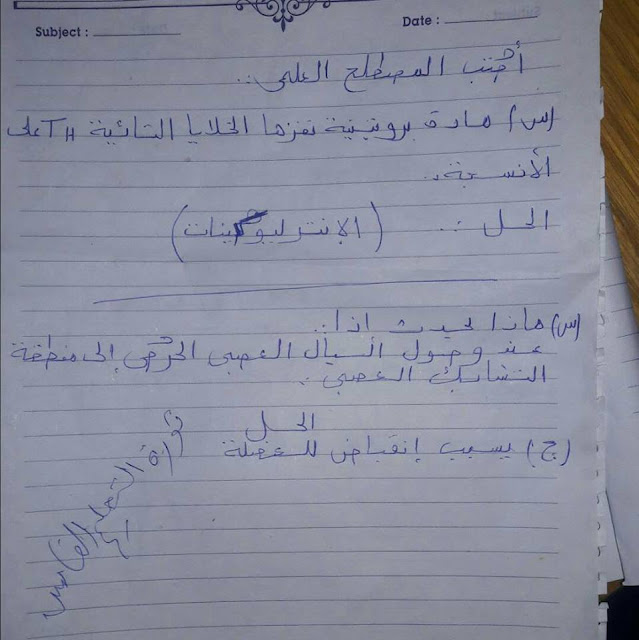 Subject :
Date :
أكتب المصطلح العلمى ..
(س) مادة بروتينية تفرزها الخلايا التائية TH على
الأنسجة..
الحل :. (الإنترليوكينات)
(س) ماذا يحدث اذا :.
عند وصول السيال العصبى الحركى إلى منطقة
التشابك العصبي ..
الحل
(ج) يسبب إنقباض للعضلة